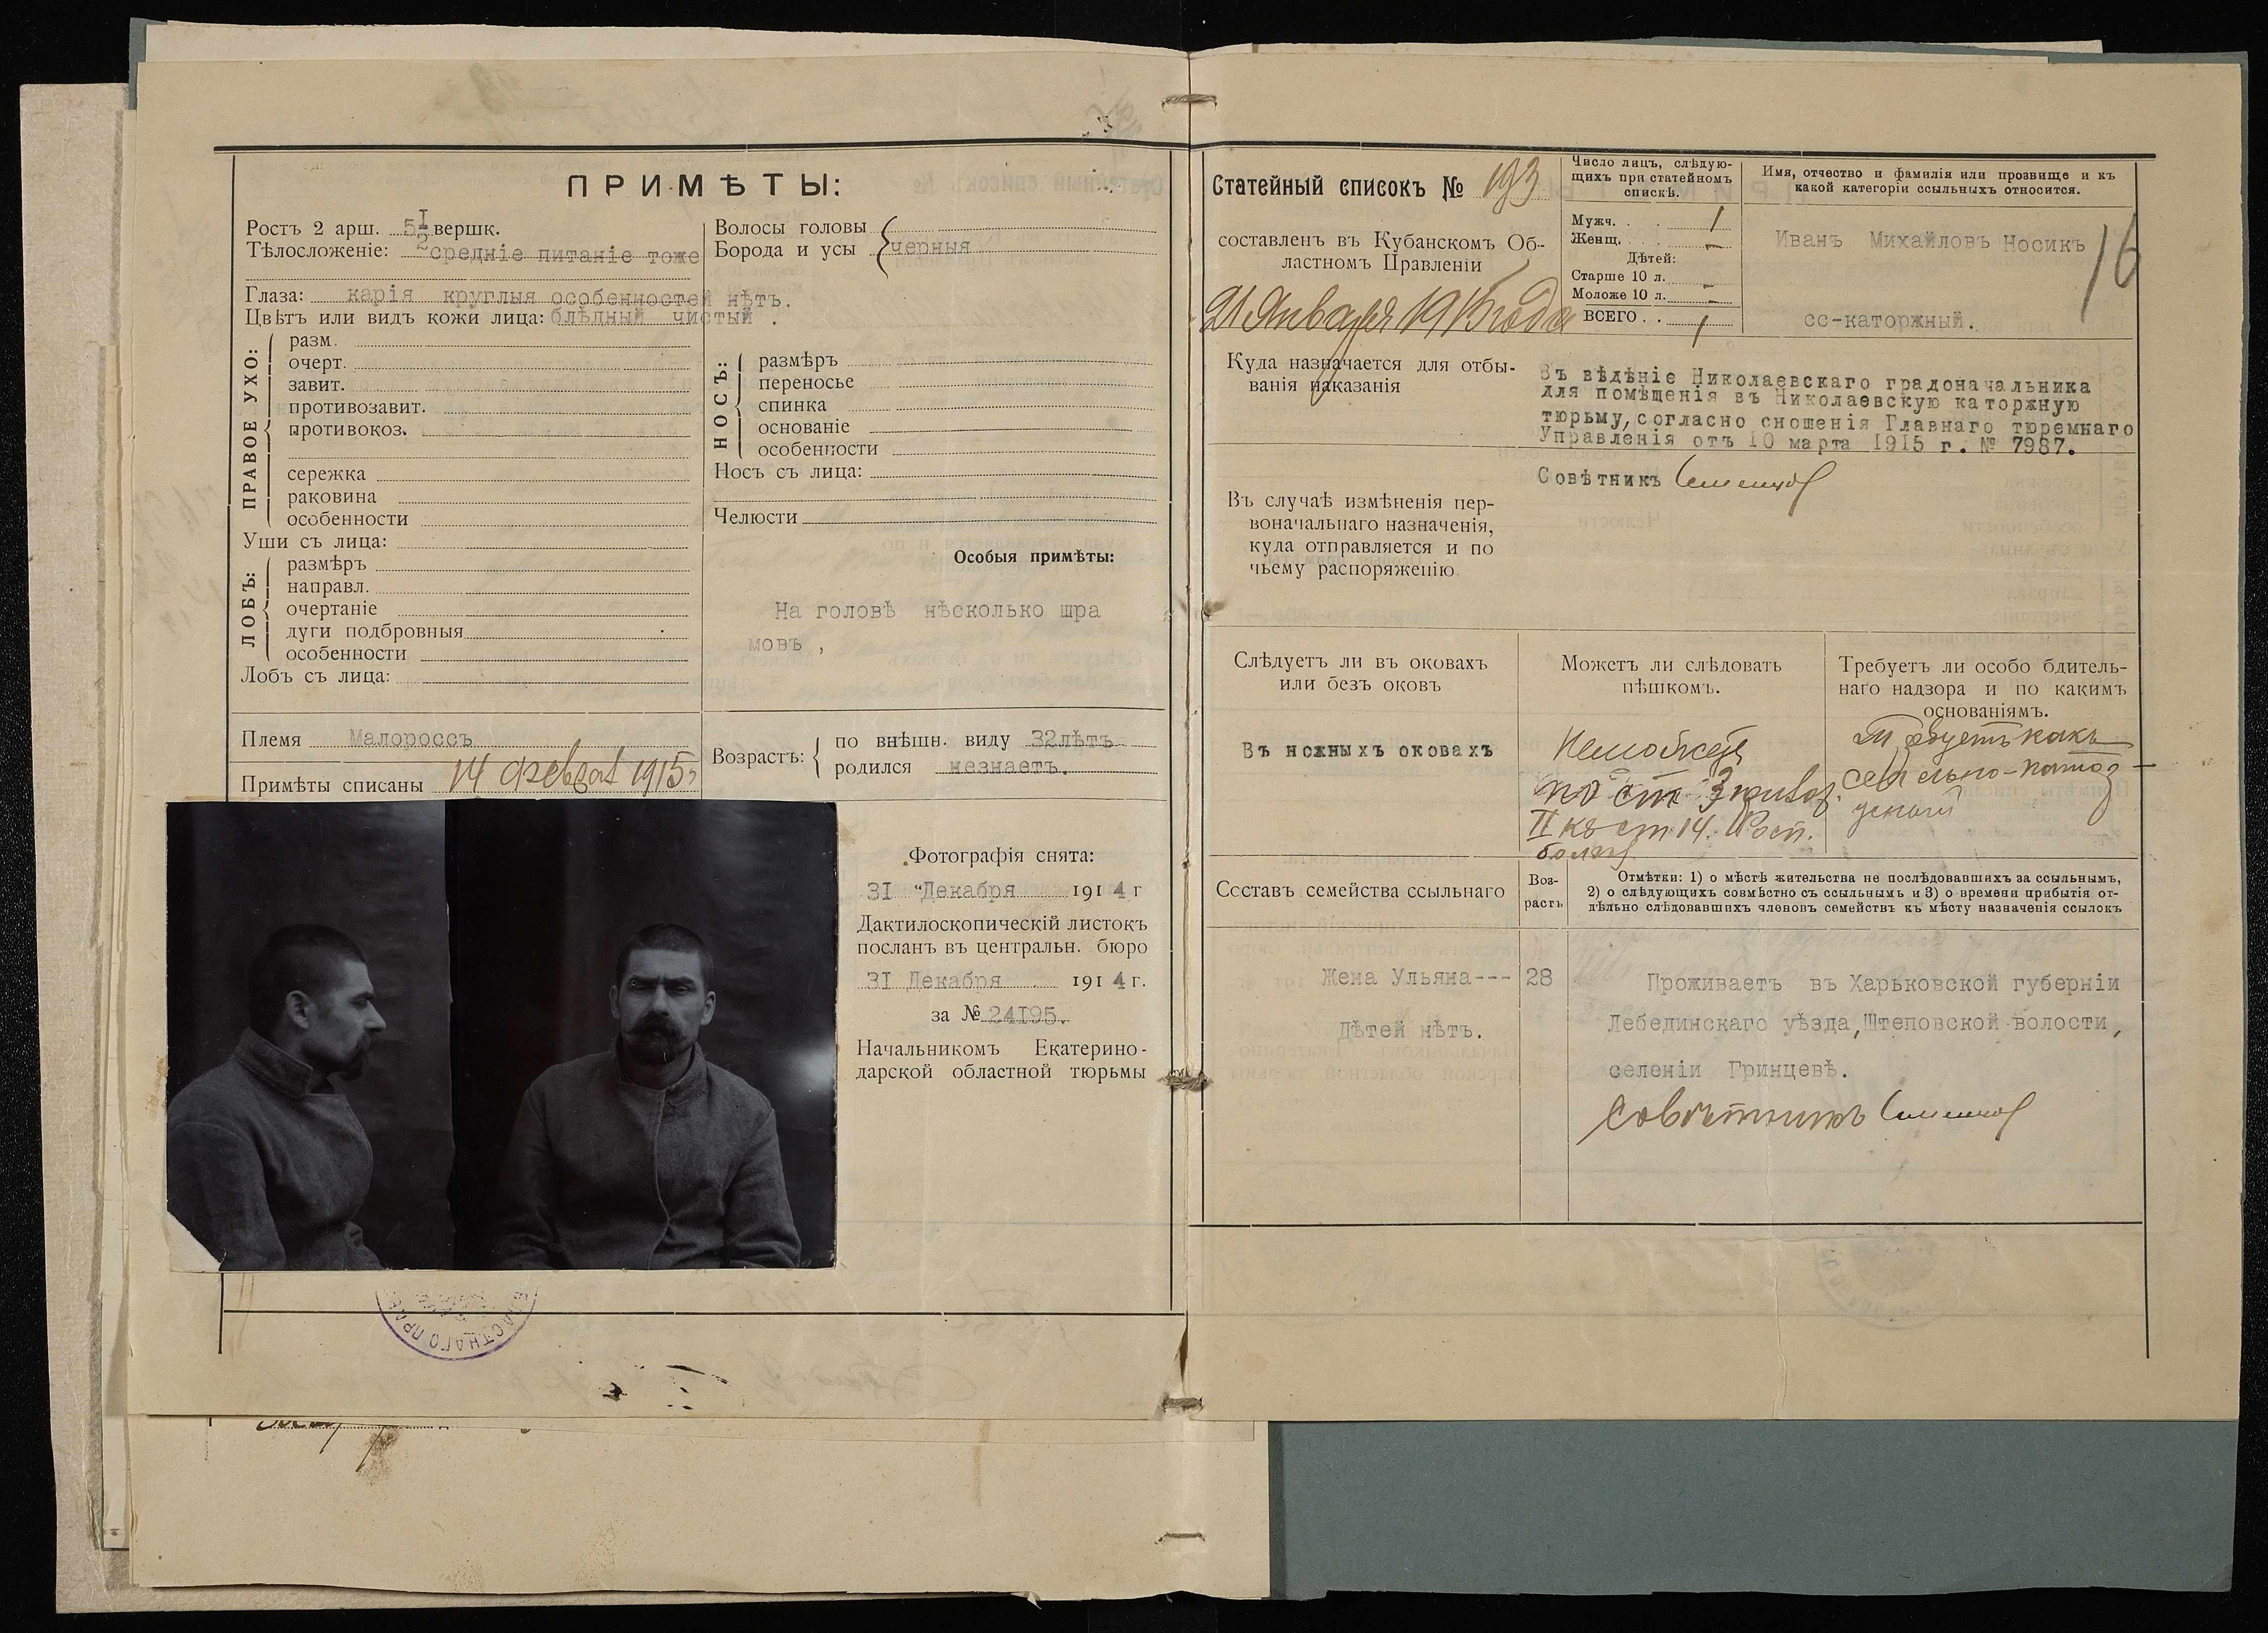 ПРИМѢТЫ:
Ростъ 2 арш. 5 1/2 вершк.
Тѣлосложеніе: средніе питаніе тоже
Волосы головы
Борода и усы черныя
Глаза: карія круглыя особенностей нѣтъ.
Цвѣтъ или видъ кожи лица: блѣдный чистый .
ПРАВОЕ УХО:
разм.
очерт.
завит.
противозавит.
противокоз.
сережка
раковина
особенности
Уши съ лица:
ЛОБЪ:
размѣръ
направл.
очертаніе
дуги подбровныя
особенности
Лобъ съ лица:
НОСЪ:
размѣръ
переносье
спинка
основаніе
особенности
Носъ съ лица:
Челюсти
Особыя примѣты:
На головѣ нѣсколько шра
мовъ ,
Племя Малороссъ
Примѣты списаны 14 февраля 1915 г
Возрастъ:
по внѣшн. виду 32лѣтъ
родился незнаетъ.
Фотографія снята:
31 "Декабря 1914 г
Дактилоскопическій листокъ
посланъ въ центральн. бюро
31 Декабря 1914 г.
за № 24195.
Начальникомъ Екатерино-
дарской областной тюрьмы
Статейный списокъ № 193
составленъ въ Кубанскомъ Об-
ластномъ Правленіи
21 Января 1915 года
Число лицъ, слѣдую-
щихъ при статейномъ
спискѣ.
Мужч. . . 1
Женщ. . . –
Дѣтей:
Старше 10 л.
Моложе 10 л. –
ВСЕГО . . 1
Имя, отчество и фамилія или прозвище и къ
какой категоріи ссыльныхъ относится.
Иванъ Михайловъ Носикъ
16
сс-каторжный.
Куда назначается для отбы-
ванія наказанія
Въ вѣдѣніе Николаевскаго градоначальника
для помѣщенія въ Николаевскую каторжную
тюрьму, согласно сношенія Главнаго тюремнаго
Управленія отъ 10 марта 1915 г. № 7987.
Совѣтникъ
Въ случаѣ измѣненія пер-
воначальнаго назначенія,
куда отправляется и по
чьему распоряженію
Слѣдуетъ ли въ оковахъ
или безъ оковъ
Въ ножныхъ оковахъ
Можетъ ли слѣдовать
пѣшкомъ.
Неможетъ
по ст 3
II къ ст 14. Росп.
болѣз
Требуетъ ли особо бдитель-
наго надзора и по какимъ
основаніямъ.
Требуетъ какъ
ссыльно-катор-
жный
Составъ семейства ссыльнаго
Воз-
растъ
Отмѣтки: 1) о мѣстѣ жительства не послѣдовавшихъ за ссыльнымъ,
2) о слѣдующихъ совмѣстно съ ссыльнымъ и 3) о времени прибытія от-
дѣльно слѣдовавшихъ членовъ семействъ къ мѣсту назначенія ссылокъ
Жена Ульяна---
28
Дѣтей нѣтъ.
Проживаетъ въ Харьковской губерніи
Лебединскаго уѣзда, Штеповской волости,
селеніи Гринцевѣ.
Совѣтникъ